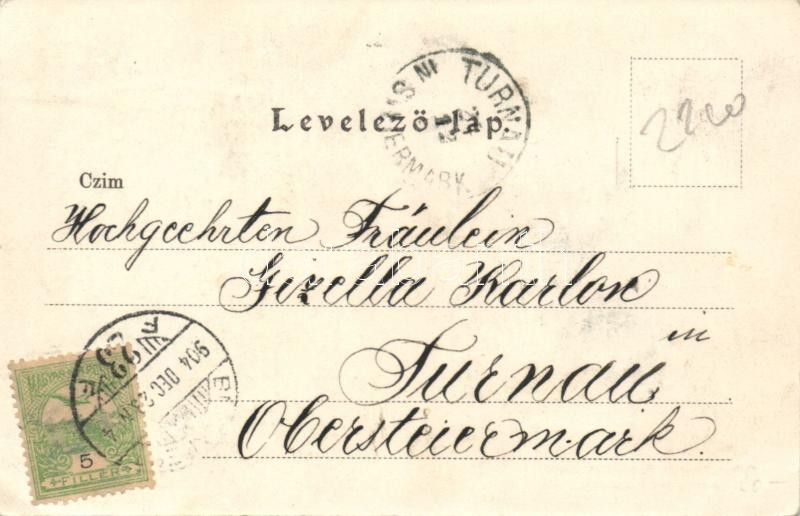 Levelező-lap.
TURNAU IN
STEIERMARK
2200
Czim
Hochgeehrten Fräulein
Gizella Karlon
in
Turnau
Obersteiermark.
904 DEC
5
FILLER